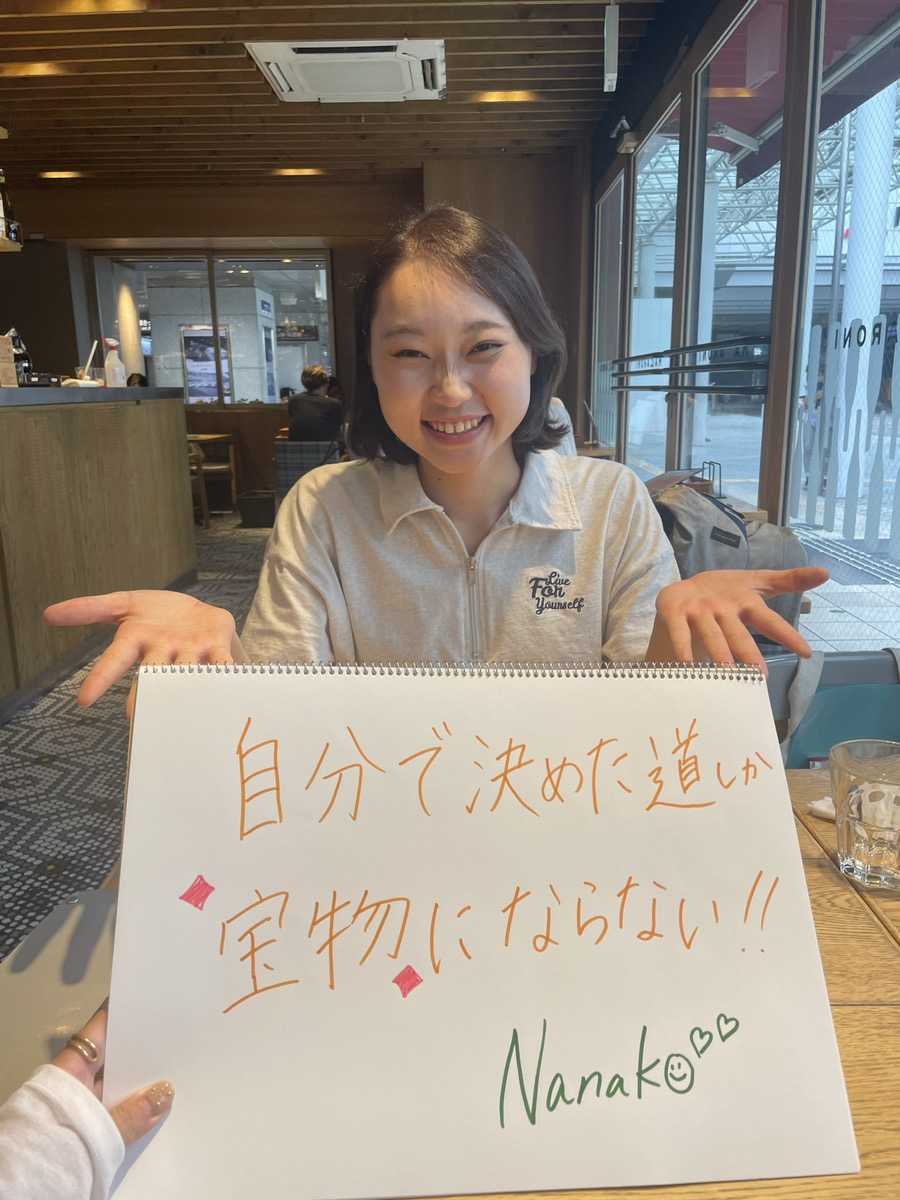 Live
For
Yourself
自分で決めた道しか
宝物にならない!!
Nanako